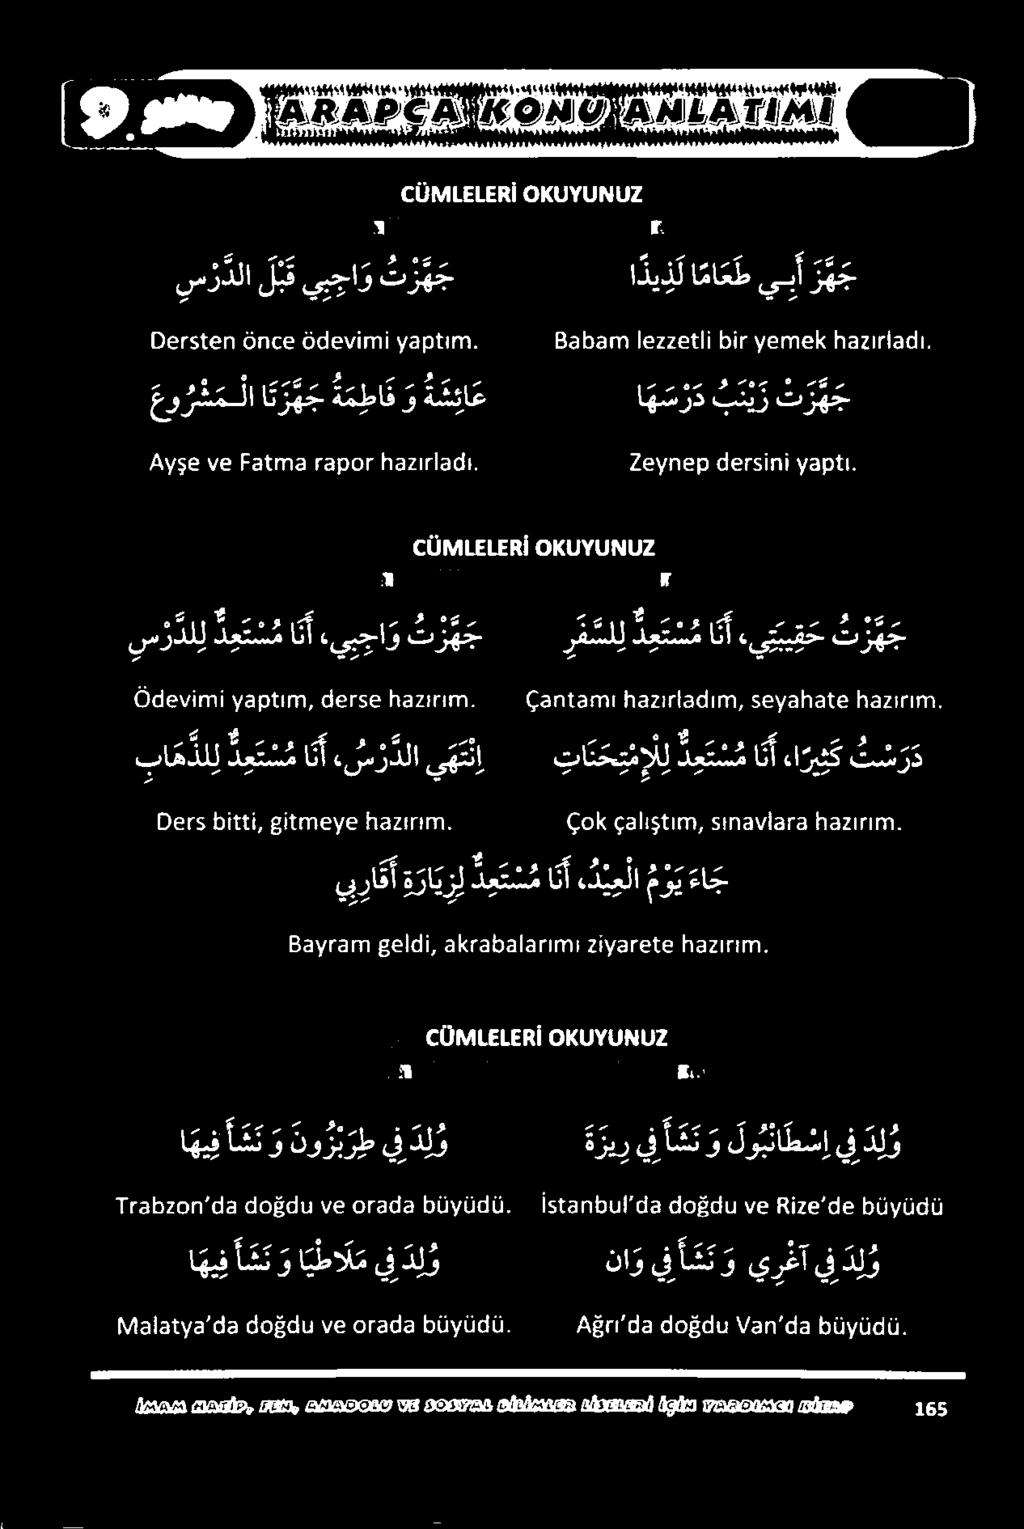 9. SINIF ARAPÇA KONU ANLATIMI
CÜMLELERİ OKUYUNUZ
جَهَّزَ أَبِي طَعَامًا لَذِيذًا
جَهَّزْتُ وَاجِبِي قَبْلَ الدَّرْسِ
Babam lezzetli bir yemek hazırladı.
Dersten önce ödevimi yaptım.
جَهَّزَتْ زَيْنَبُ دَرْسَهَا
عَائِشَةُ وَ فَاطِمَةُ جَهَّزَتَا الْـمَشْرُوعَ
Zeynep dersini yaptı.
Ayşe ve Fatma rapor hazırladı.
CÜMLELERİ OKUYUNUZ
جَهَّزْتُ حَقِيبَتِي، أَنَا مُسْتَعِدٌّ لِلسَّفَرِ
جَهَّزْتُ وَاجِبِي، أَنَا مُسْتَعِدٌّ لِلدَّرْسِ
Çantamı hazırladım, seyahate hazırım.
Ödevimi yaptım, derse hazırım.
دَرَسْتُ كَثِيرًا، أَنَا مُسْتَعِدٌّ لِلْاِمْتِحَنَاتِ
اِنْتَهَي الدَّرْسُ، أَنَا مُسْتَعِدٌّ لِلذَّهَابِ
Çok çalıştım, sınavlara hazırım.
Ders bitti, gitmeye hazırım.
جَاءَ يَوْمُ الْعِيْدُ، أَنَا مُسْتَعِدٌّ لِزِيَارَةِ أَقَارِبِي
Bayram geldi, akrabalarımı ziyarete hazırım.
CÜMLELERİ OKUYUNUZ
وُلِدَ فِي اِسْطَانْبُولَ وَ نَشَأَ فِي رِيزَةَ
وُلِدَ فِي طَرَبْزُونَ وَ نَشَأَ فِيهَا
İstanbul'da doğdu ve Rize'de büyüdü
Trabzon'da doğdu ve orada büyüdü.
وُلِدَ فِي آغْرِي وَ نَشَأَ فِي وَان
وُلِدَ فِي مَلَاطْيَا وَ نَشَأَ فِيهَا
Ağrı'da doğdu Van'da büyüdü.
Malatya'da doğdu ve orada büyüdü.
İMAM HATİP, FEN, ANADOLU VE SOSYAL BİLİMLER LİSELERİ İÇİN YARDIMCI KİTAP 165